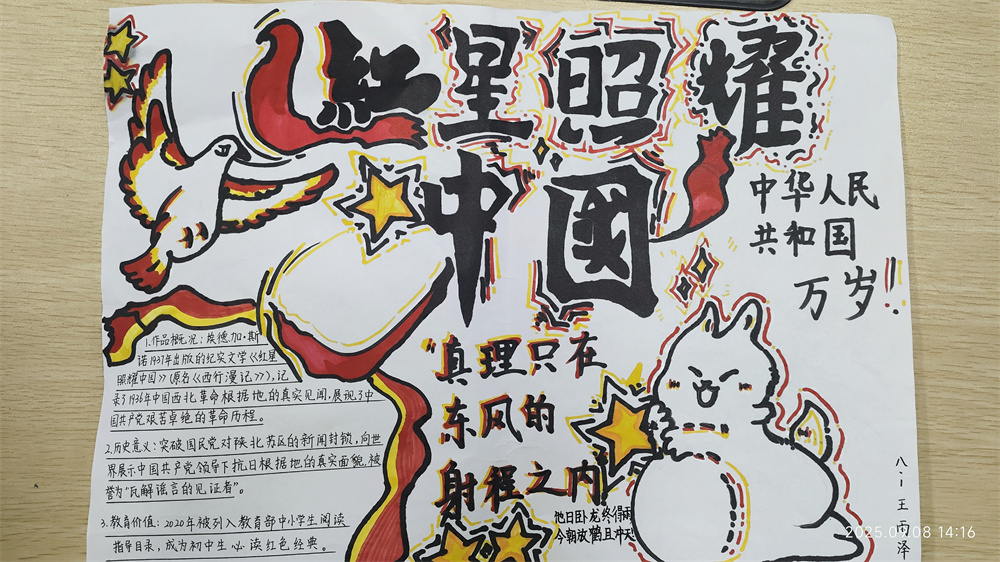 紅星照耀
中國
中华人民
共和国
万岁!!
1.作品概况：埃德加·斯
诺1937年出版的纪实文学《红星
照耀中国》(原名《西行漫记》)，记
录了1936年中国西北革命根据地的真实见闻，展现了中
国共产党艰苦卓绝的革命历程。
2.历史意义：突破国民党对陕北苏区的新闻封锁，向世
界展示中国共产党领导下抗日根据地的真实面貌，被
誉为“瓦解谣言的见证者”。
3.教育价值：2020年被列入教育部中小学生阅读
指导目录，成为初中生必读红色经典。
“真理只在
东风的
射程之内
他日卧龙终得雨
今朝放鹤且冲天
八：王雨泽
2025.09.08 14:16